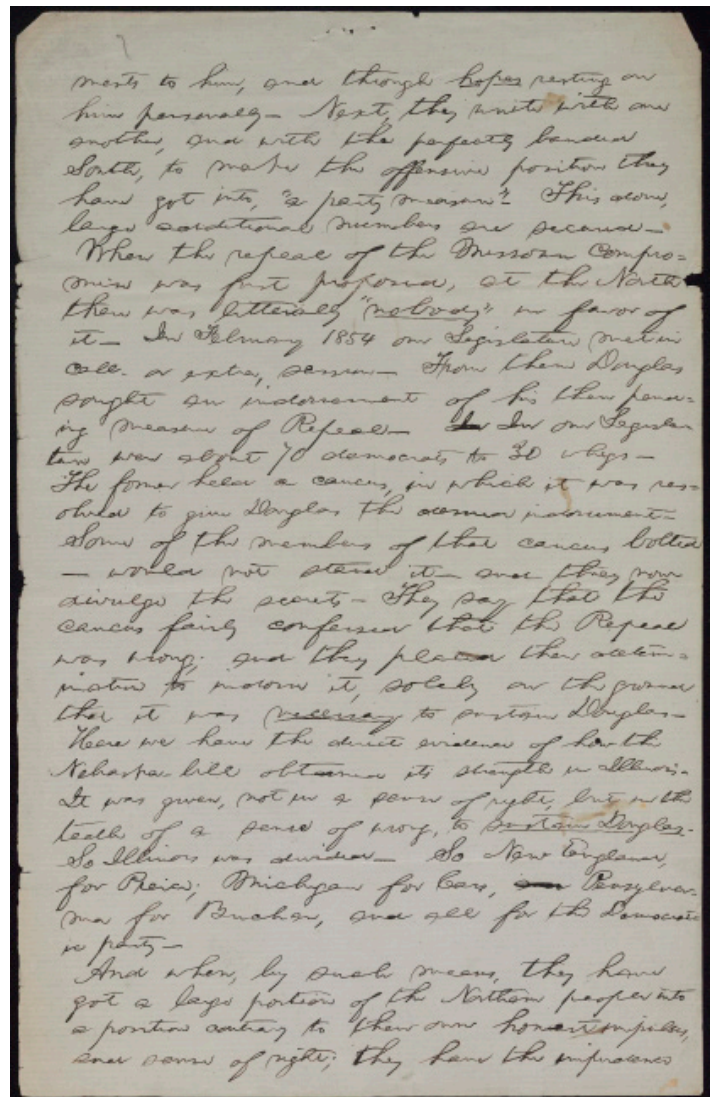 ments to him, and through hopes resting on
him personally— Next, they unite with one
another, and with the perfectly banded
South, to make the offensive position they
have got into, "a party measure"— This done,
large additional numbers are secured—
When the repeal of the Missouri Compro=
mise was first proposed, at the North
there was litterally "nobody" in favor of
it— In February 1854 our Legislature met in
call, or extra, session— From them Douglas
sought an indorsement of his then pend=
ing measure of Repeal— In our Legisla
ture were about 70 democrats to 30 whigs—
The former held a caucus, in which it was res=
olved to give Douglas the desired indorsement—
Some of the members of that caucus bolted
— would not stand it— and they now
divulge the secrets— They say that the
caucus fairly confessed that the Repeal
was wrong; and they placed their determ=
ination to indorse it, solely on the ground
that it was necessary to sustain Douglas—
Here we have the direct evidence of how the
Nebraska-bill obtained its strength in Illinois—
It was given, not in a sense of right, but in the
teeth of a sense of wrong, to sustain Douglas—
So Illinois was divided— So New England,
for Peirce; Michigan for Cass, Pensylva=
nia for Buchan, and all for the Democrat
ic party—
And when, by such means, they have
got a large portion of the Northern people into
a position contrary to their own honest impulses,
and sense of right; they have the impudence